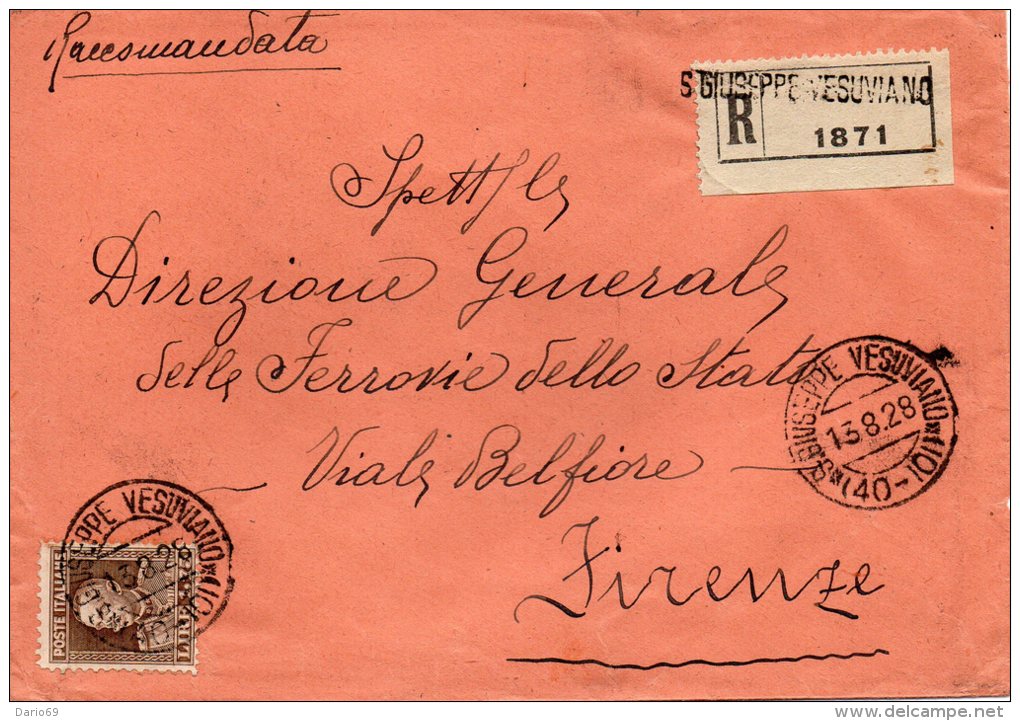 Raccomandata
S. GIUSEPPE VESUVIANO
R
1871
Spett/le
Direzione Generale
delle Ferrovie dello Stato
Viale Belfiore
Firenze
S. GIUSEPPE VESUVIANO
13.8.28
(40-110)
GIUSEPPE VESUVIANO
13.8.28
POSTE ITALIANE
LIRE
Dario69
delcampe.net